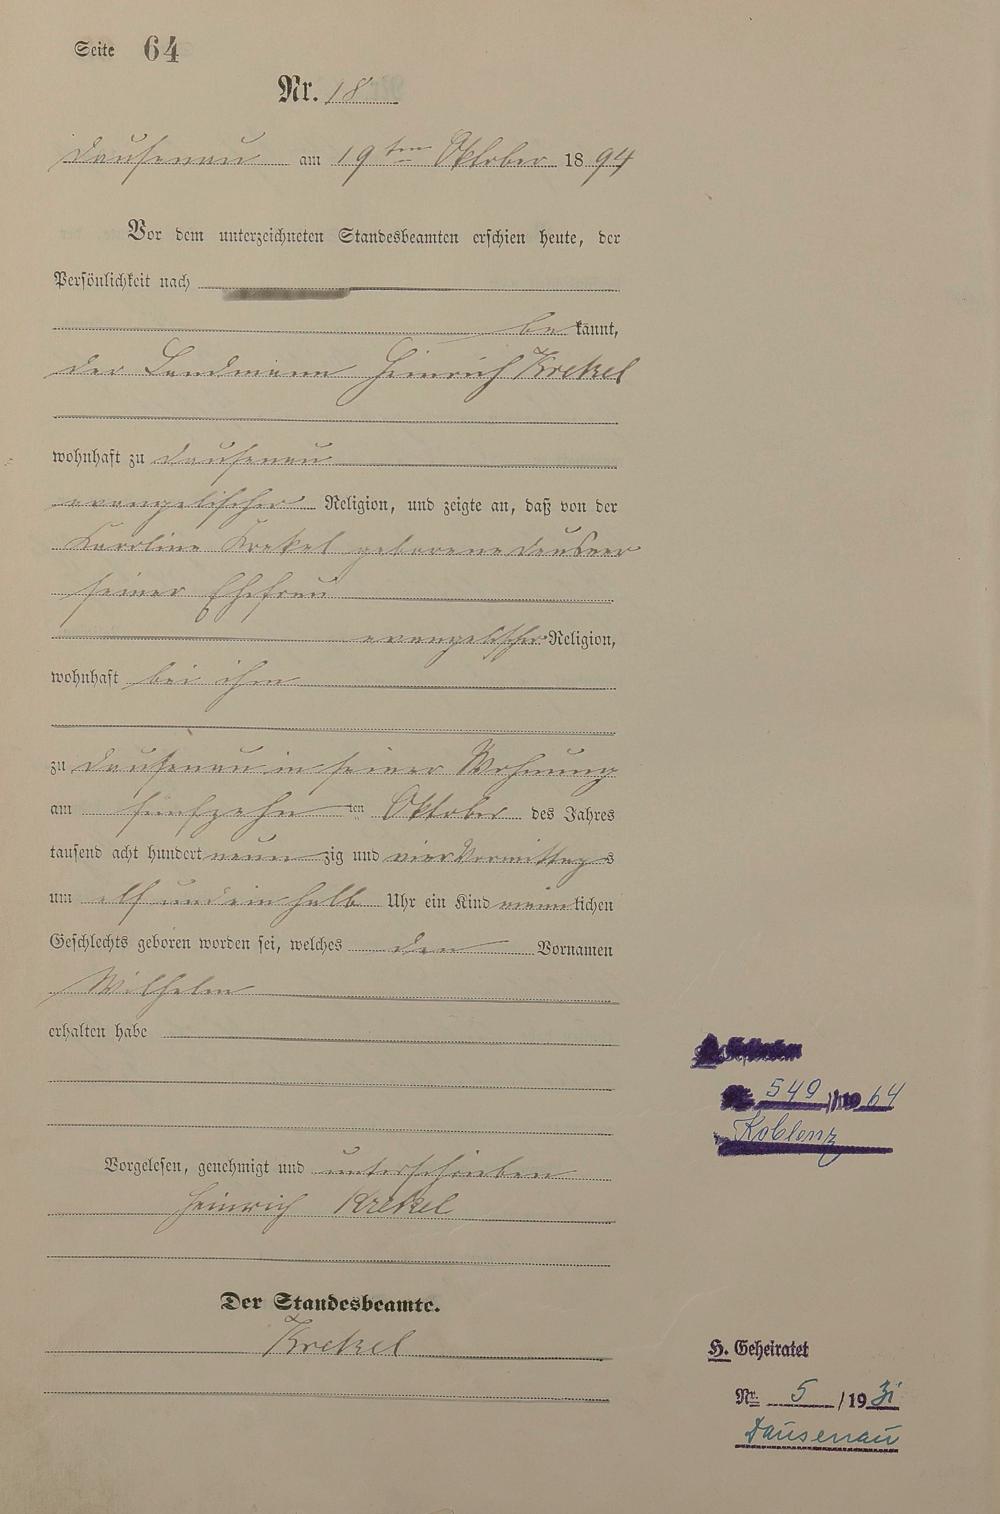 Seite 64
Nr. 18
Dausenau am 19ten Oktober 1894
Vor dem unterzeichneten Standesbeamten erschien heute, der
Persönlichkeit nach
bekannt,
der Landmann Heinrich Krekel
wohnhaft zu Dausenau
evangelischer Religion, und zeigte an, daß von der
Karoline Krekel geborene
seiner Ehefrau
evangelischer Religion,
wohnhaft bei ihm
zu Dausenau in seiner Wohnung
am fünfzehnten Oktober des Jahres
tausend acht hundert neunzig und vier Vormittags
um elf und ein halb Uhr ein Kind männlichen
Geschlechts geboren worden sei, welches den Vornamen
Wilhelm
erhalten habe
Vorgelesen, genehmigt und unterschrieben
Heinrich Krekel
Der Standesbeamte.
Krekel
549/1964
Koblenz
H. Geheiratet
Nr. 5/1931
Dausenau